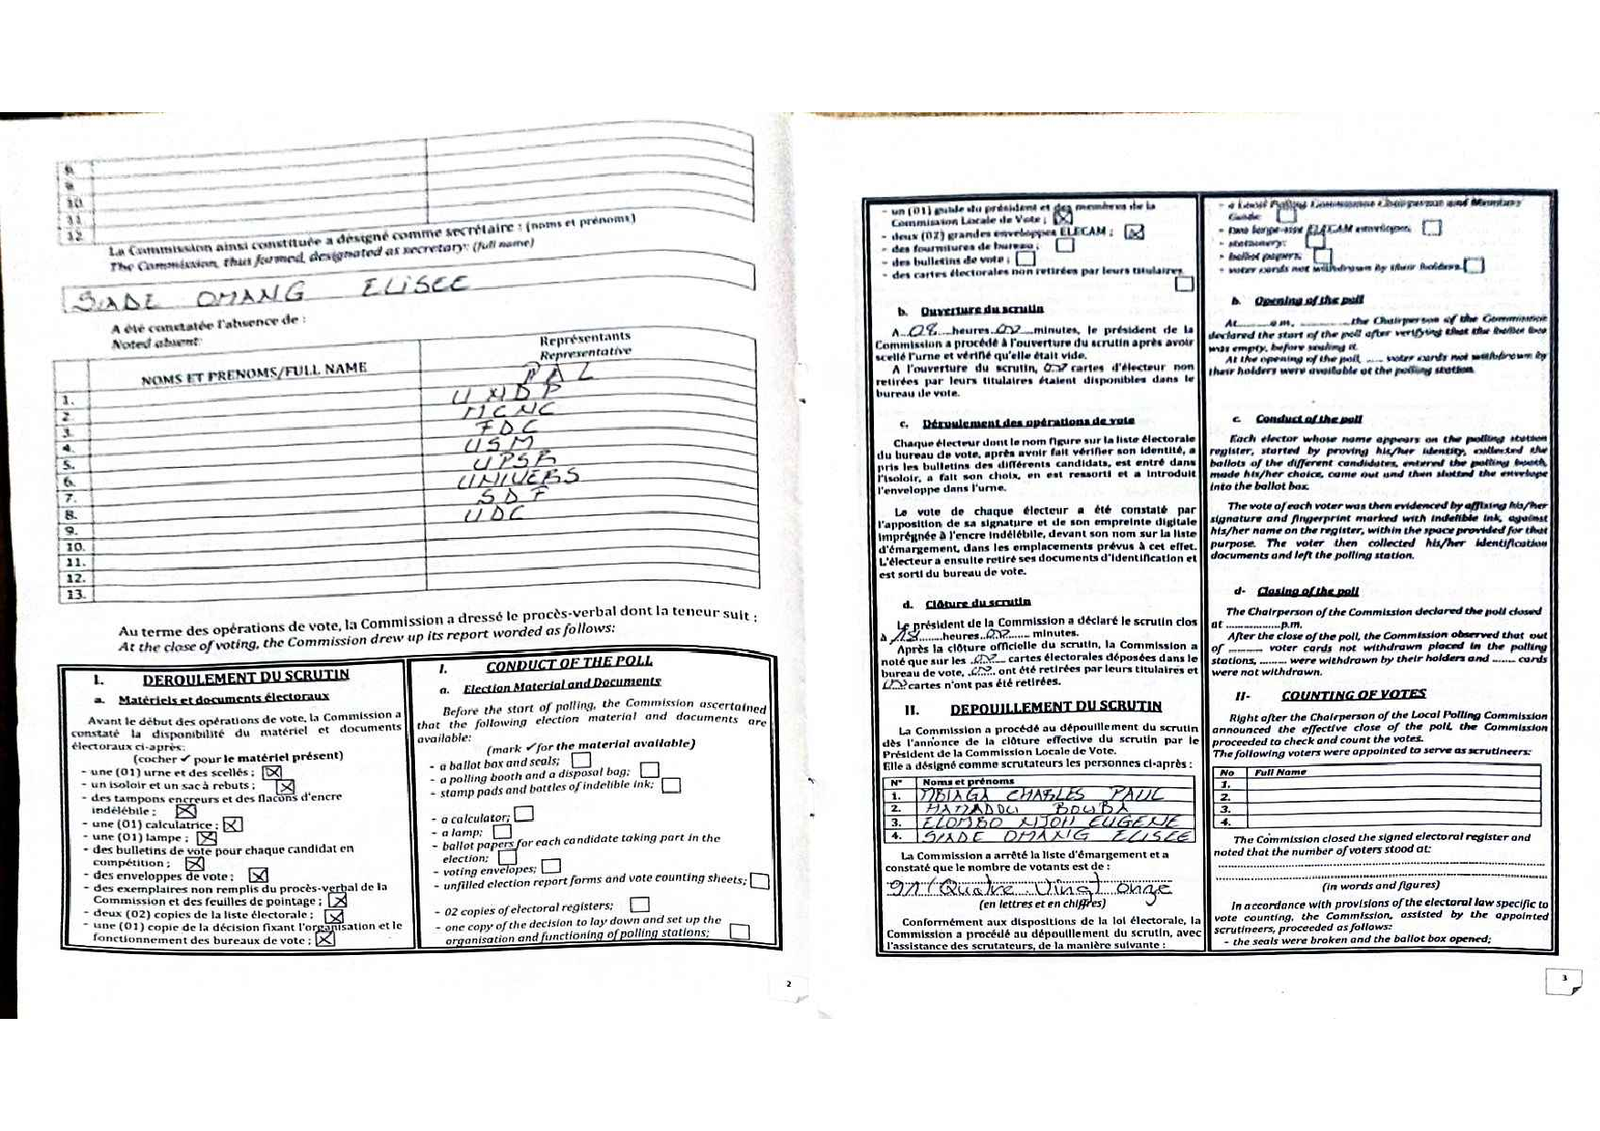 8.
9.
10.
11.
12.
La Commission ainsi constituée a désigné comme secrétaire : (noms et prénoms)
The Commission, thus formed, designated as secretary: (full name)
SADE OMANG ELISEE
A été constatée l'absence de :
Noted absent:
NOMS ET PRENOMS/FULL NAME
Représentants
Representative
PAL
1. UNDP
2. MCNC
3. FDC
4. USM
5. UPSR
6. UNIVERS
7. SDF
8. UDC
9.
10.
11.
12.
13.
Au terme des opérations de vote, la Commission a dressé le procès-verbal dont la teneur suit :
At the close of voting, the Commission drew up its report worded as follows:
I. DEROULEMENT DU SCRUTIN
a. Matériels et documents électoraux
Avant le début des opérations de vote, la Commission a
constaté la disponibilité du matériel et documents
électoraux ci-après:
(cocher ✓ pour le matériel présent)
- une (01) urne et des scellés ;
- un isoloir et un sac à rebuts ;
- des tampons encreurs et des flacons d'encre
indélébile ;
- une (01) calculatrice ;
- une (01) lampe ;
- des bulletins de vote pour chaque candidat en
compétition ;
- des enveloppes de vote ;
- des exemplaires non remplis du procès-verbal de la
Commission et des feuilles de pointage ;
- deux (02) copies de la liste électorale ;
- une (01) copie de la décision fixant l'organisation et le
fonctionnement des bureaux de vote ;
I. CONDUCT OF THE POLL
a. Election Material and Documents
Before the start of polling, the Commission ascertained
that the following election material and documents are
available:
(mark ✓ for the material available)
- a ballot box and seals;
- a polling booth and a disposal bag;
- stamp pads and bottles of indelible ink;
- a calculator;
- a lamp;
- ballot papers for each candidate taking part in the
election;
- voting envelopes;
- unfilled election report forms and vote counting sheets;
- 02 copies of electoral registers;
- one copy of the decision to lay down and set up the
organisation and functioning of polling stations;
2
- un (01) guide du président et des membres de la
Commission Locale de Vote ;
- deux (02) grandes enveloppes ELECAM ;
- des fournitures de bureau ;
- des bulletins de vote ;
- des cartes électorales non retirées par leurs titulaires
b. Ouverture du scrutin
A 08 heures 00 minutes, le président de la
Commission a procédé à l'ouverture du scrutin après avoir
scellé l'urne et vérifié qu'elle était vide.
A l'ouverture du scrutin, 00 cartes d'électeur non
retirées par leurs titulaires étaient disponibles dans le
bureau de vote.
c. Déroulement des opérations de vote
Chaque électeur dont le nom figure sur la liste électorale
du bureau de vote, après avoir fait vérifier son identité, a
pris les bulletins des différents candidats, est entré dans
l'isoloir, a fait son choix, en est ressorti et a introduit
l'enveloppe dans l'urne.
Le vote de chaque électeur a été constaté par
l'apposition de sa signature et de son empreinte digitale
imprégnée à l'encre indélébile, devant son nom sur la liste
d'émargement, dans les emplacements prévus à cet effet.
L'électeur a ensuite retiré ses documents d'identification et
est sorti du bureau de vote.
d. Clôture du scrutin
Le président de la Commission a déclaré le scrutin clos
à 18 heures 00 minutes.
Après la clôture officielle du scrutin, la Commission a
noté que sur les 00 cartes électorales déposées dans le
bureau de vote, 00 ont été retirées par leurs titulaires et
00 cartes n'ont pas été retirées.
II. DEPOUILLEMENT DU SCRUTIN
La Commission a procédé au dépouillement du scrutin
dès l'annonce de la clôture effective du scrutin par le
Président de la Commission Locale de Vote.
Elle a désigné comme scrutateurs les personnes ci-après :
N° Noms et prénoms
1. MBIAGA CHARLES PAUL
2. HAMADOU BOUBA
3. ELOMBO NJOH EUGENE
4. SADE OMANG ELISEE
La Commission a arrêté la liste d'émargement et a
constaté que le nombre de votants est de :
91 (Quatre Vingt onze
(en lettres et en chiffres)
Conformément aux dispositions de la loi électorale, la
Commission a procédé au dépouillement du scrutin, avec
l'assistance des scrutateurs, de la manière suivante :
- a Local Polling Commission Chairperson and Members'
Guide;
- two large-size ELECAM envelopes;
- stationery;
- ballot papers;
- voter cards not withdrawn by their holders.
b. Opening of the poll
At........a.m, ............the Chairperson of the Commission
declared the start of the poll after verifying that the ballot box
was empty, before sealing it.
At the opening of the poll, ..... voter cards not withdrawn by
their holders were available at the polling station.
c. Conduct of the poll
Each elector whose name appears on the polling station
register, started by proving his/her identity, collected the
ballots of the different candidates, entered the polling booth,
made his/her choice, came out and then slotted the envelope
into the ballot box.
The vote of each voter was then evidenced by affixing his/her
signature and fingerprint marked with indelible ink, against
his/her name on the register, within the space provided for that
purpose. The voter then collected his/her identification
documents and left the polling station.
d- Closing of the poll
The Chairperson of the Commission declared the poll closed
at ....................p.m.
After the close of the poll, the Commission observed that out
of .......... voter cards not withdrawn placed in the polling
stations, ......... were withdrawn by their holders and ....... cards
were not withdrawn.
II- COUNTING OF VOTES
Right after the Chairperson of the Local Polling Commission
announced the effective close of the poll, the Commission
proceeded to check and count the votes.
The following voters were appointed to serve as scrutineers:
No Full Name
1.
2.
3.
4.
The Commission closed the signed electoral register and
noted that the number of voters stood at:
(in words and figures)
In accordance with provisions of the electoral law specific to
vote counting, the Commission, assisted by the appointed
scrutineers, proceeded as follows:
- the seals were broken and the ballot box opened;
3